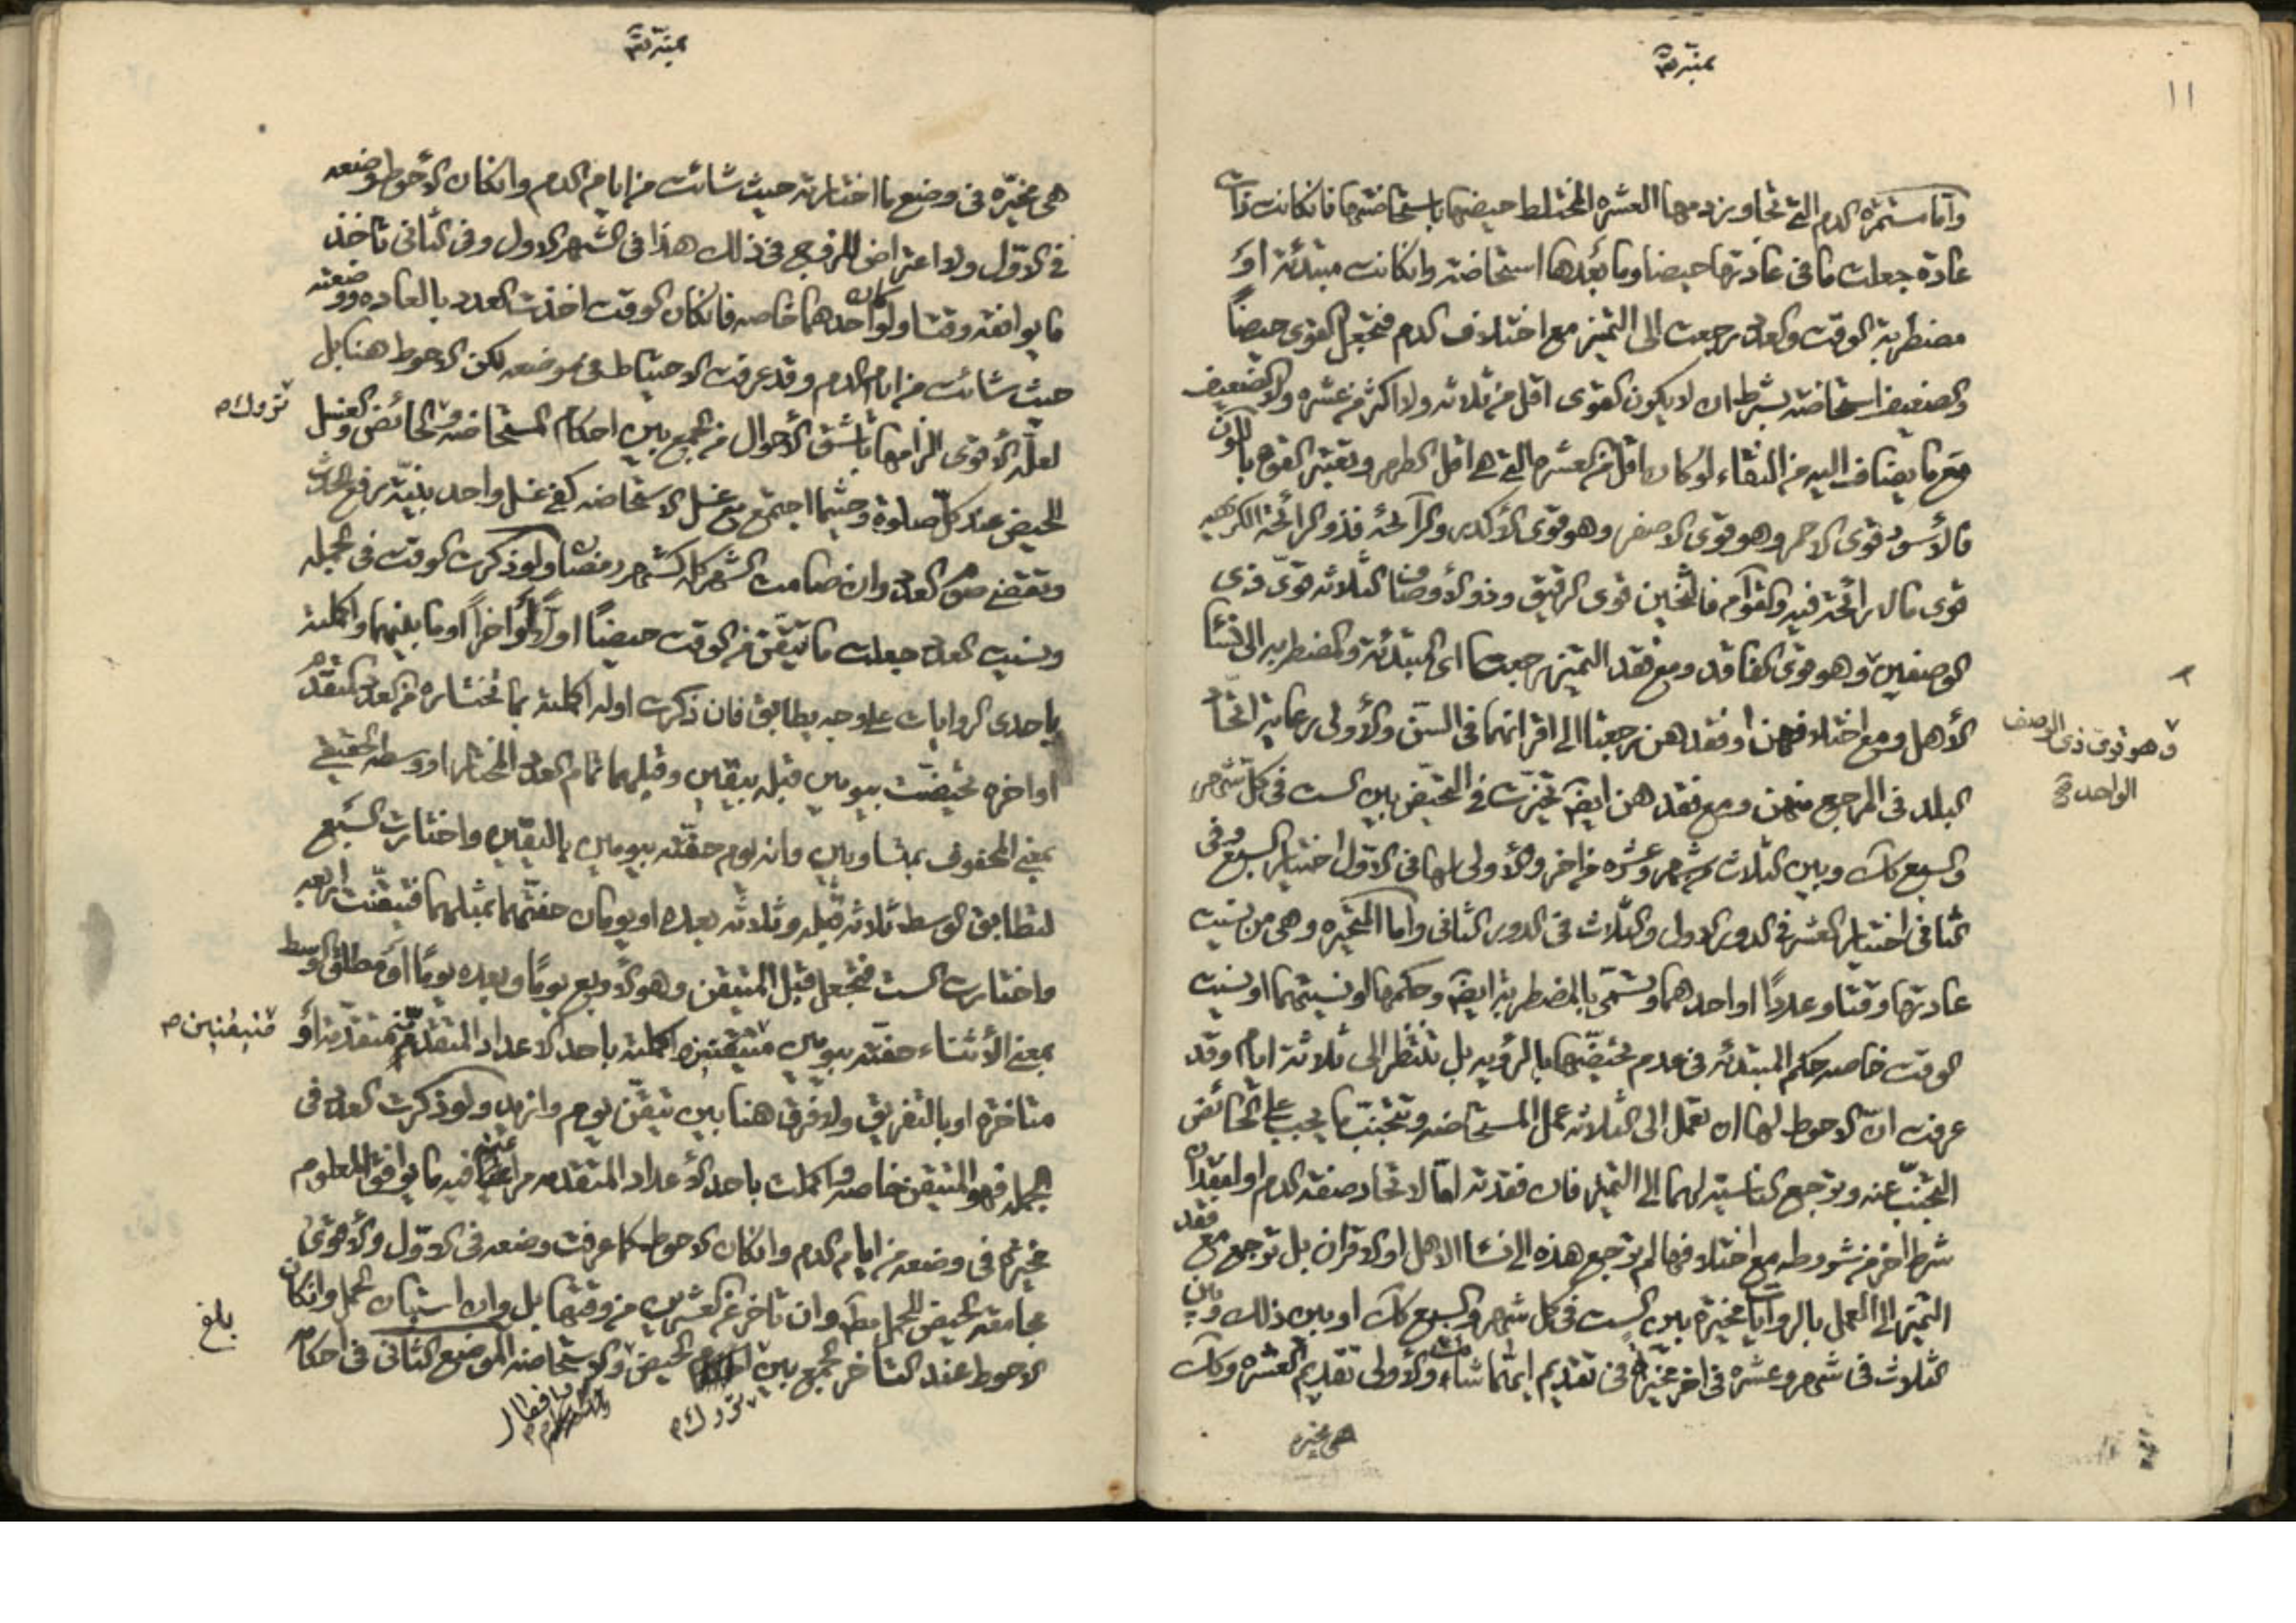 ١١
واما مستمرة الدم التي تجاوز دمها العشره المختلط حيضها باستحاضتها فانكانت ذات
عادة جعلت ما في عادتها حيضا وما بعدها استحاضة وانكانت مبتدئة او
مضطربة الوقت والعدد رجعت الى التميز مع اختلاف الدم فتجعل القوى حيضاً
والضعيف استحاضة بشرط ان لا يكون القوى اقل من ثلاثه ولا اكثر من عشره ولا الضعيف
مع ما يضاف اليه من النقاء لو كان اقل من العشره التي هي اقل الطهر وتعتبر القوة باللون
فالأسود قوى الاحمر وهو قوى الاصفر وهو قوى الأكدر والرآئحة فذو الرائحة الكريهه
قوى ما لا رائحة فيه والقوام فالثخين قوى الرقيق وذو الأوصاف الثلاثه قوى ذى
الوصفين وهو قوى الفاقد ومع فقد التميز رجعتا اى المبتدئة والمضطربه الى نسآء
وهو قوى ذى الوصف
الواحد صح
الأهل ومع اختلافهن او فقدهن رجعتا الى اقرانهما في السن والأولى رعاية اتحاد
البلد في المرجع منهن ومع فقدهن ايضا تخيرت في التحيض بين الست في كل شهر
والسبع كك وبين الثلاث من شهر وعشره من اخر والأولى لها في الاول اختيار السبع وفي
الثاني اختيار العشر في الدور الاول والثلاث في الدور الثاني واما المتحيره وهي من نسيت
عادتها وقتا وعددًا او احدهما وتسمى بالمضطربة ايضا وحكمها لو نسيتهما او نسيت
الوقت خاصه حكم المبتدئه في عدم تحيضها بالرؤيه بل تنتظر الى ثلاثة ايام وقد
عرفت ان الاحوط لها ان تعمل الى الثلاثه عمل المستحاضه وتتجنب ما يجب على الحائض
التجنب عنه وترجع الناسية لهما الى التميز فان فقدته اما لاتحاد صفة الدم او لفقدان
شرط اخر من شروطه مع اختلافها لم ترجع هذه الى نسآء الاهل او الاقران بل ترجع مع فقد
التميز الى العمل بالروايات مخيرة بين الست في كل شهر والسبع كك او بين ذلك وبين
الثلاث في شهر وعشره في اخر مخيرة في تقديم ايتهما شاءت والأولى تقديم العشره وكك
هي مخيره
هي مخيرّه في وضع ما اختارته حيث شائت من ايام الدم وانكان الأحوط وضعه
في الاوّل ولا اعتراض للزوج في ذلك هذا في الشهر الاول وفي الثاني تاخذ
ما يوافقه وقتا ولو كان احدهما خاصه فانكان الوقت اخذت العدد بالعاده ووضعته
حيث شائت من ايام الدم وقد عرفت الاحتياط في موضعه لكن الاحوط هنا بل
لعله الأقوى الزامها باشق الأحوال من الجمع بين احكام المستحاضه وتروك الحائض وغسل
تروك م
الحيض عند كل صلوة وحيثما اجتمع مع غسل الاستحاضه كفى غسل واحد بنيّة رفع الحدث
وتقضى صوم العدد وان صامت الشهر كله كشهر رمضان ولو ذكرت الوقت في الجمله
ونسيت العدد جعلت ما تيقن من الوقت حيضًا اولاً او آخراً او ما بينهما واكملته
باحدى الروايات على وجه يطابق فان ذكرت اوله اكملته بما تختاره من العدد المتقدم
او اخره تحيضت بيومين قبله بيقين وقبلهما تمام العدد المختار او وسطه الحقيقي
بمعنى المحفوف بمتساويين وانه يوم حفته بيومين باليقين واختارت السبع
لتطابق الوسط ثلاثه قبله وثلاثه بعده او يومان حفتهما بمثلهما فتيقنت اربعه
واختارت الست فتجعل قبل المتيقن وهو الاربع يومًا وبعده يومًا او مطلق الوسط
بمعنى الأثناء حفته بيومين متيقنين واكملته باحد الاعداد المتقدمه متقدمة او
متيقنين م
متاخرة او بالتفريق ولا فرق هنا بين تيقن يوم وازيد ولو ذكرت العدد في
الجمله فهو المتيقن خاصه واكملت باحد الأعداد المتقدمه مراعية فيه ما يوافق المعلوم
مخيرة في وضعه من ايام الدم وانكان الاحوط كما عرفت وضعه في الاول والأقوى
مجامعة الحيض للحمل مطلقا وان تاخر عن العشرين من وقتها بل وان استبان الحمل وانكان
الاحوط عند التاخر الجمع بين الحيض والاستحاضه الموضع الثاني في احكام
تروك م
بلغ